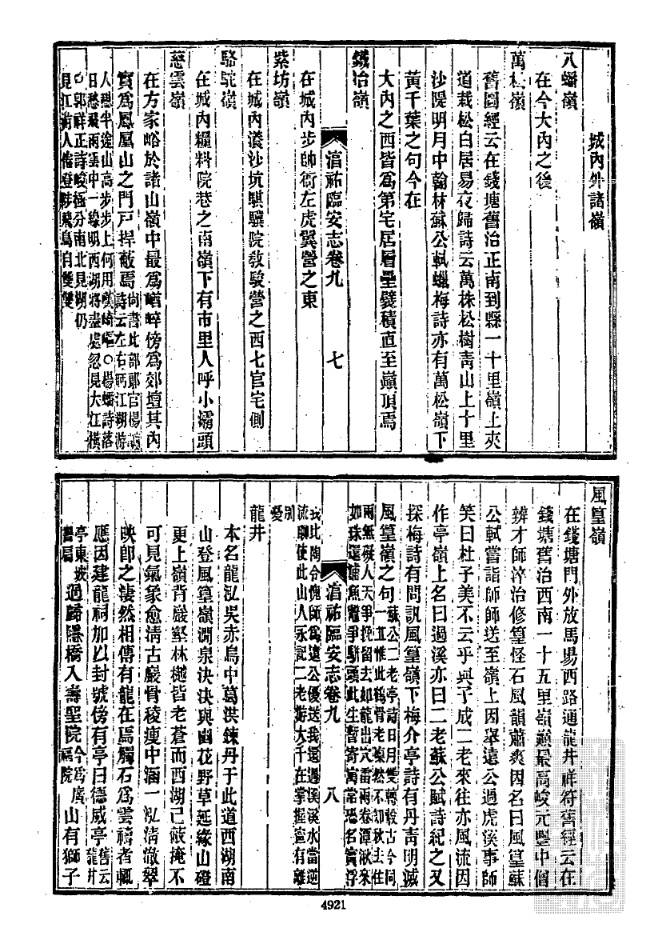 城內外諸嶺
八蟠嶺
在今大內之後
萬松嶺
舊圖經云在錢塘舊治正南到縣一十里嶺上夾
道栽松白居易夜歸詩云萬株松樹靑山上十里
沙隄明月中翰林蘇公軾蠟梅詩亦有萬松嶺下
黃千葉之句今在
大內之西皆爲第宅居層壘甓積直至嶺頂焉
鐵冶嶺
淳祐臨安志卷九
七
在城內步帥衙左虎翼營之東
紫坊嶺
在城內漾沙坑驥驥院敎駿營之西七官宅側
駱駝嶺
在城內糧料院巷之南嶺下有市里人呼小灞頭
慈雲嶺
在方家峪於諸山嶺中最爲崷崪傍爲郊壇其內
實爲鳳凰山之門戶捍蔽焉
風篁嶺
在錢塘門外放馬場西路通龍井祥符舊經云在
錢塘舊治西南一十五里嶺巔最高峻元豐中僧
辨才師淬治修篁怪石風韻蕭爽因名曰風篁蘇
公軾嘗詣師師送至嶺上因舉遠公過虎溪事師
笑曰杜子美不云乎與子成二老來往亦風流因
作亭嶺上名曰過溪亦曰二老蘇公賦詩紀之又
探梅詩有問訊風篁嶺下梅介亭詩有丹靑明滅
風篁嶺之句
淳祐臨安志卷九
八
龍井
本名龍泓吳赤烏中葛洪鍊丹于此道西湖南
山登風篁嶺澗泉決決與幽花野草延緣山磴
更上嶺背巖壑林樾皆老蒼而西湖已蔽掩不
可見氣象愈淸古巖骨稜瘦中涵一泓淸澈翠
映卽之淒然相傳有龍在焉觸石爲雲禱者輒
應因建龍祠加以封號傍有亭曰德威亭
過歸隱橋入壽聖院
山有獅子
4921